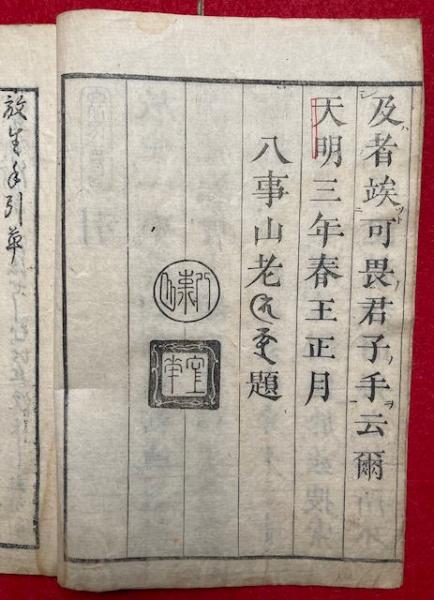 及者竢可畏君子手云爾
天明三年春王正月
八事山老 題
放生手引草